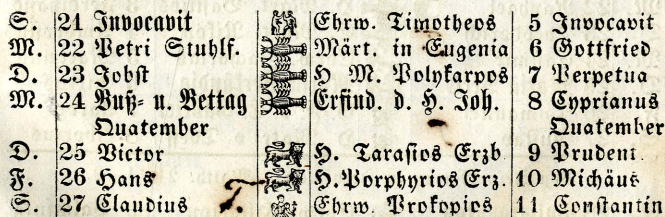 S. 21 Invocavit Ehrw. Timotheos 5 Invocavit
M. 22 Petri Stuhlf. Märt. in Eugenia 6 Gottfried
D. 23 Jobst H M. Polykarpos 7 Perpetua
M. 24 Buß- u. Bettag Erfind. d. H. Joh. 8 Cyprianus
Quatember Quatember
D. 25 Victor H. Tarasios Erzb 9 Prudent.
F. 26 Hans H. Porphyrios Erz. 10 Michäus
S. 27 Claudius Ehrw. Prokopios 11 Constantin